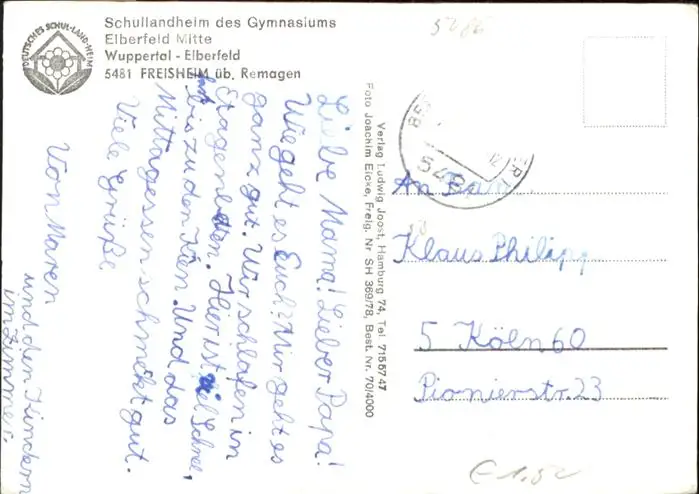 DEUTSCHES SCHUL-LAND-HEIM
Schullandheim des Gymnasiums
Elberfeld Mitte
Wuppertal - Elberfeld
5481 FREISHEIM üb. Remagen
Liebe Mama! Lieber Papa!
Wie geht es Euch? Mir geht es
ganz gut. Wir schlafen in
Etagenbetten. Hier ist viel Schnee,
bis zu den Knien. Und das
Mittagessen schmeckt gut.
Viele Grüße
Von Maren
und den Kindern
im Zimmer.
Verlag Ludwig Joost, Hamburg 74, Tel 7155747
Foto Joachim Eicke, Freig. Nr SH 369/78, Best. Nr. 70/4000
5486
An Fam
Klaus Philipp
5 Köln 60
Pionierstr. 23
€ 1,50